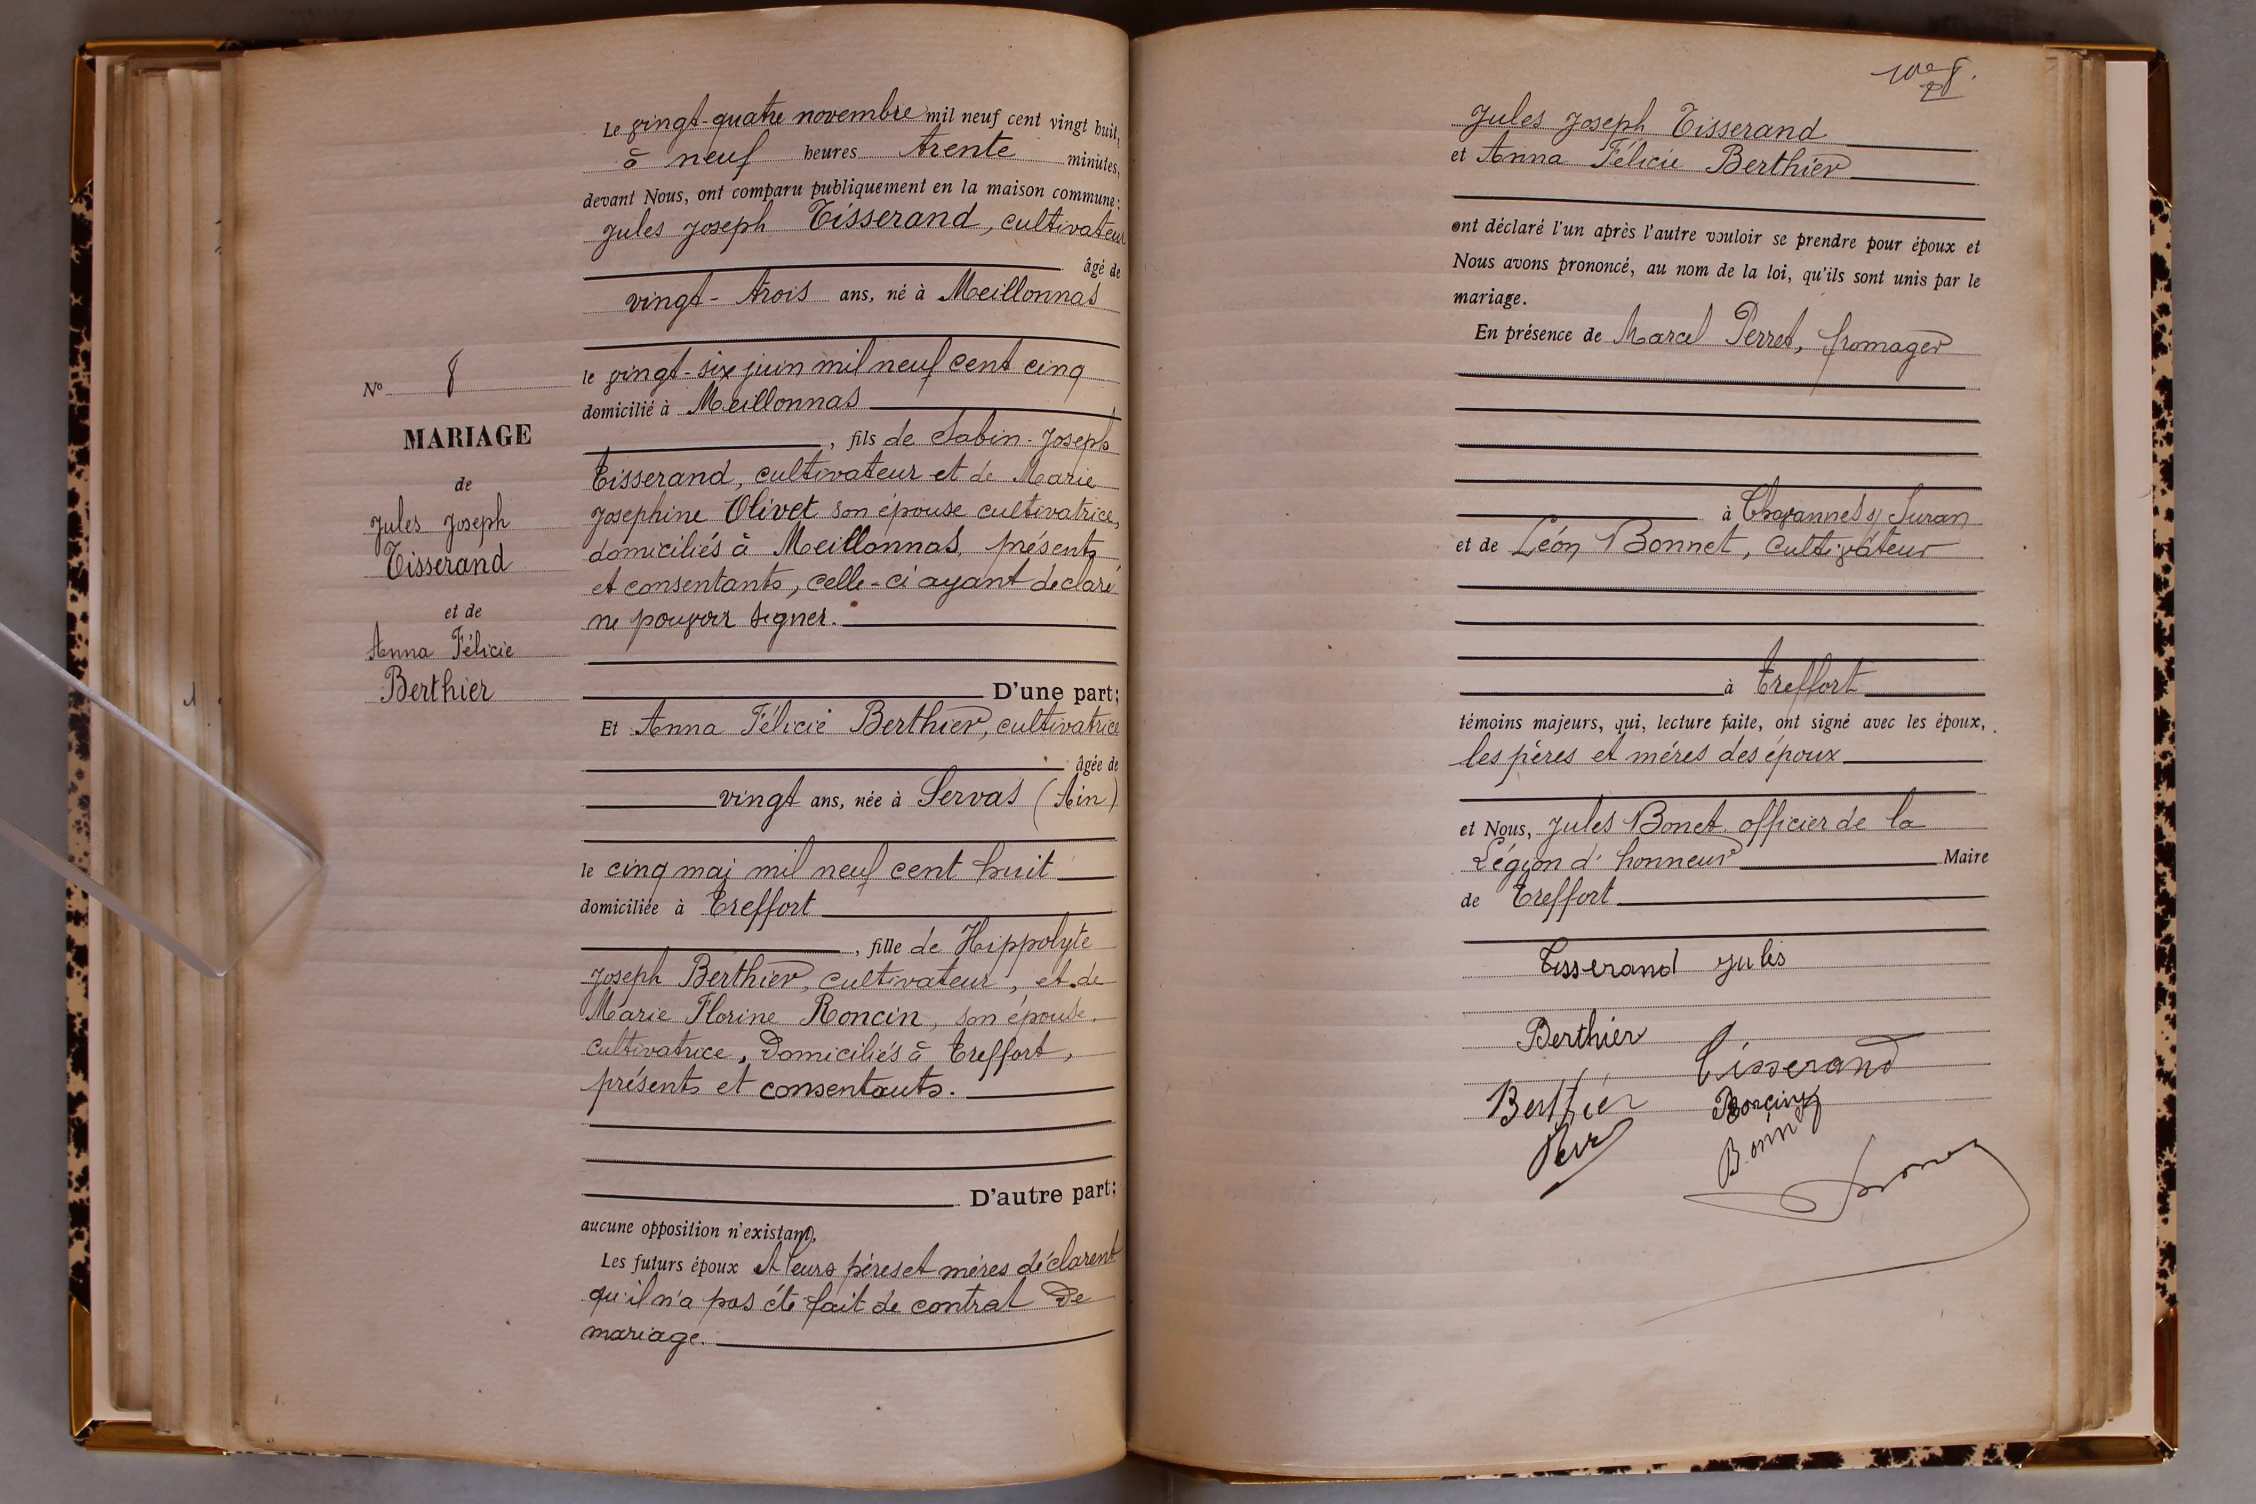 Le vingt-quatre novembre mil neuf cent vingt huit,
à neuf heures trente minutes,
devant Nous, ont comparu publiquement en la maison commune:
Jules Joseph Tisserand, cultivateur
âgé de
vingt-trois ans, né à Meillonnas
le vingt-six juin mil neuf cent cinq
domicilié à Meillonnas
, fils de Sabin-Joseph
Tisserand, cultivateur et de Marie
Josephine Olivet son épouse cultivatrice,
domiciliés à Meillonnas, présents
et consentants, celle-ci ayant déclaré
ne pouvoir signer.
D'une part;
Et Anna Félicie Berthier, cultivatrice
âgée de
vingt ans, née à Servas (Ain)
le cinq mai mil neuf cent huit
domiciliée à Treffort
, fille de Hippolyte
Joseph Berthier, cultivateur, et de
Marie Florine Roncin, son épouse
cultivatrice, domiciliés à Treffort,
présents et consentants.
D'autre part;
aucune opposition n'existant,
Les futurs époux et leurs pères et mères déclarent
qu'il n'a pas été fait de contrat de
mariage.
N° 8
MARIAGE
de
Jules Joseph
Tisserand
et de
Anna Félicie
Berthier
Jules Joseph Tisserand
et Anna Félicie Berthier
ont déclaré l'un après l'autre vouloir se prendre pour époux et
Nous avons prononcé, au nom de la loi, qu'ils sont unis par le
mariage.
En présence de Marcel Perret, fromager
à Chavannes s/ Suran
et de Léon Bonnet, cultivateur
à Treffort
témoins majeurs, qui, lecture faite, ont signé avec les époux,
les pères et mères des époux
et Nous, Jules Bonet officier de la
Légion d'honneur Maire
de Treffort
Tisserand Jules
Berthier
Tisserand
Berthier
Roncin